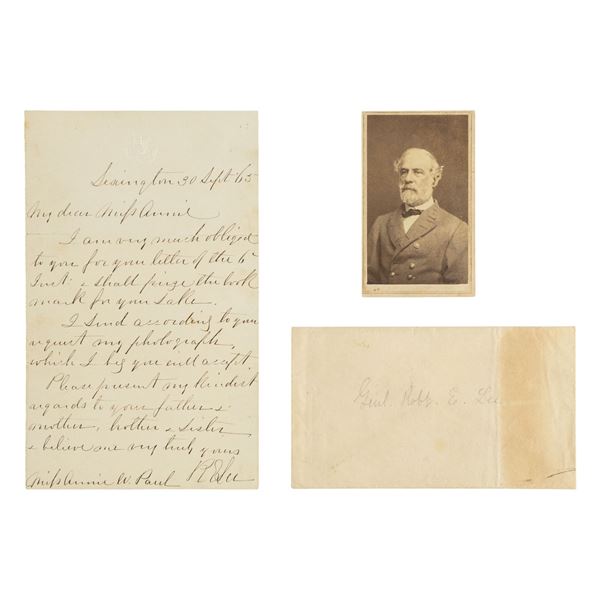 Lexington 30 Sept 65
My dear Miss Annie
I am very much obliged
to you for your letter of the 6th
Inst: & shall prize the book
mark for your sake.
I send according to your
request my photograph,
which I beg you will accept.
Please present my kindest
regards to your father &
mother, brother & sister
& believe me very truly yours
R E Lee
Miss Annie W. Paul
Genl. Robt. E. Lee